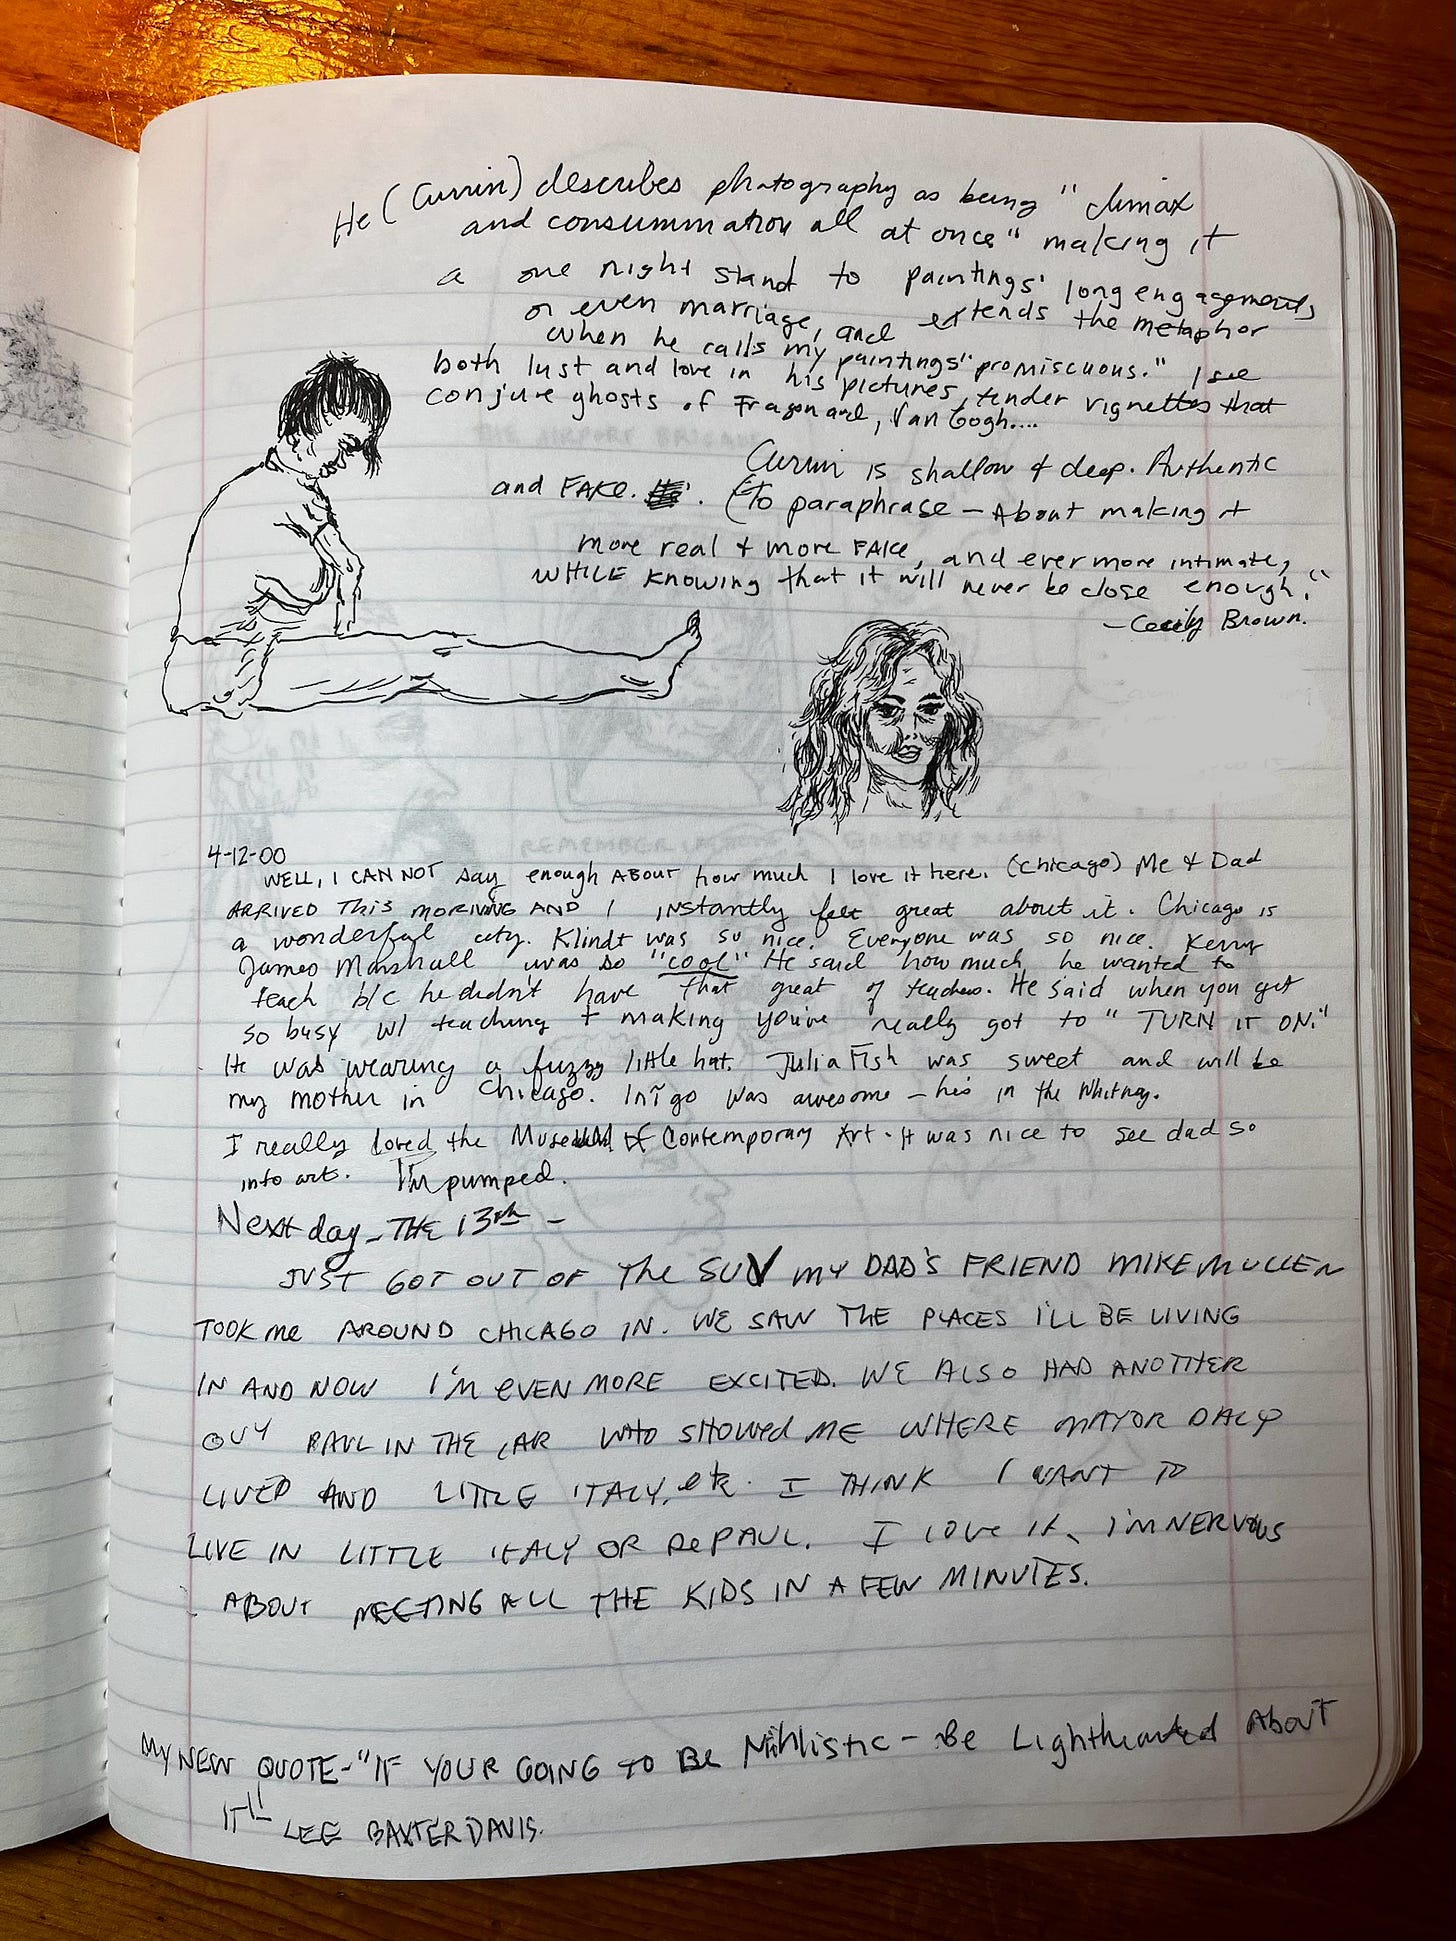 He (Currin) describes photography as being "climax
and consummation all at once" making it
a one night stand to paintings' long engagement,
or even marriage, and extends the metaphor
when he calls my paintings "promiscuous." I see
both lust and love in his pictures, tender vignettes that
conjure ghosts of Fragonard, Van Gogh....
Currin is shallow & deep. Authentic
and FAKE. (To paraphrase - About making it
more real & more FAKE, and ever more intimate,
WHILE knowing that it will never be close enough."
- Cecily Brown.
4-12-00
WELL, I CAN NOT say enough ABOUT how much I love it here. (Chicago) Me & Dad
ARRIVED THIS MORIVING AND I INSTANTLY felt great about it. Chicago is
a wonderful city. Klindt was so nice. Everyone was so nice. Kerry
James Marshall was so "cool" He said how much he wanted to
teach b/c he didn't have that great of teachers. He said when you get
so busy w/ teaching + making you've really got to "TURN IT ON."
He was wearing a fuzzy little hat. Julia Fish was sweet and will be
my mother in Chicago. Inigo was awesome - he's in the Whitney.
I really loved the Museum of Contemporary Art. It was nice to see dad so
into art. I'm pumped.
Next day - THE 13th -
JUST GOT OUT OF The SUV MY DAD'S FRIEND MIKE MULLEN
TOOK me AROUND CHICAGO IN. WE SAW THE PLACES I'LL BE LIVING
IN AND NOW I'M EVEN MORE EXCITED. WE ALSO HAD ANOTHER
GUY PAUL IN THE CAR WHO SHOWED ME WHERE MAYOR DALY
LIVED AND LITTLE ITALY, etc. I THINK I WANT TO
LIVE IN LITTLE ITALY OR DePAUL. I LOVE IT, I'M NERVOUS
ABOUT MEETING ALL THE KIDS IN A FEW MINUTES.
MY NEW QUOTE - "IF YOUR GOING TO BE Nihlistic - Be Lighthearted About
IT!" LEE BAXTER DAVIS.